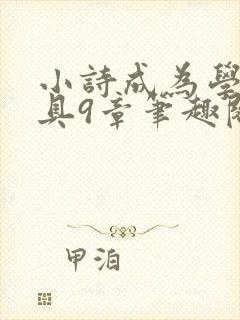 小詩成為學
具9章筆趣閱
甲泊